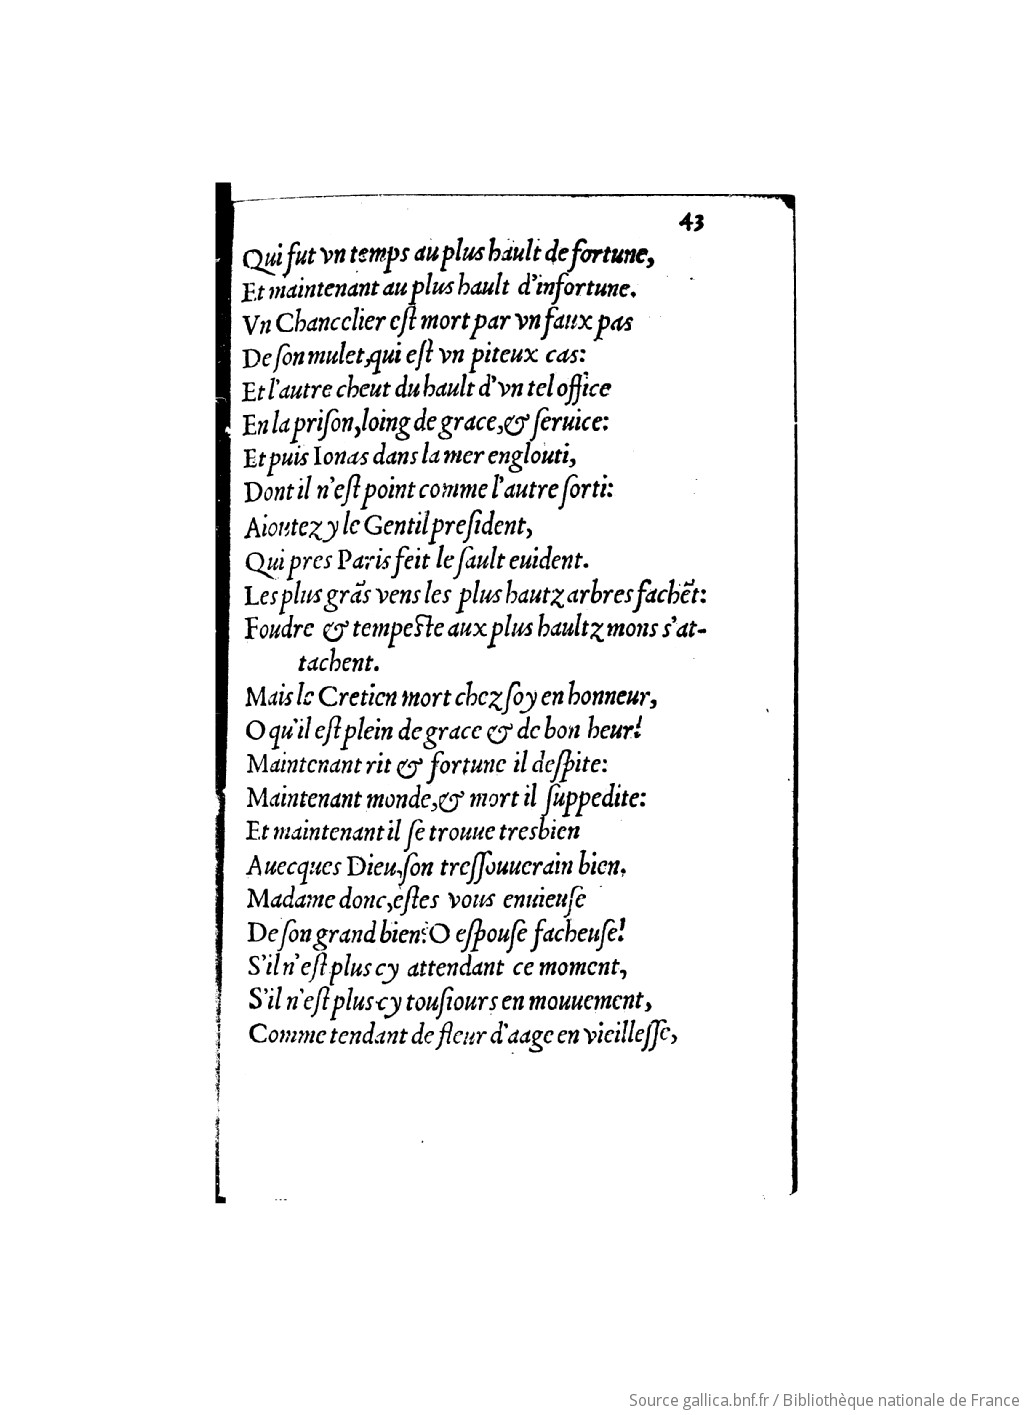 43
Qui fut vn temps au plus hault de fortune,
Et maintenant au plus hault d'infortune.
Vn Chancelier eſt mort par vn faux pas
De ſon mulet,qui eſt vn piteux cas:
Et l'autre cheut du hault d'vn tel office
En la priſon,loing de grace,& ſeruice:
Et puis Ionas dans la mer englouti,
Dont il n'eſt point comme l'autre ſorti:
Aioutez y le Gentil preſident,
Qui pres Paris feit le ſault euident.
Les plus grãs vens les plus hautz arbres fachẽt:
Foudre & tempeſte aux plus haultz mons s'at-
tachent.
Mais le Cretien mort chez ſoy en honneur,
O qu'il eſt plein de grace & de bon heur!
Maintenant rit & fortune il deſpite:
Maintenant monde,& mort il ſuppedite:
Et maintenant il ſe trouue tresbien
Auecques Dieu,ſon treſſouuerain bien.
Madame donc,eſtes vous enuieuſe
De ſon grand bien?O eſpouſe facheuſe!
S'il n'eſt plus cy attendant ce moment,
S'il n'eſt plus cy touſiours en mouuement,
Comme tendant de fleur d'aage en vieilleſſe,
Source gallica.bnf.fr / Bibliothèque nationale de France